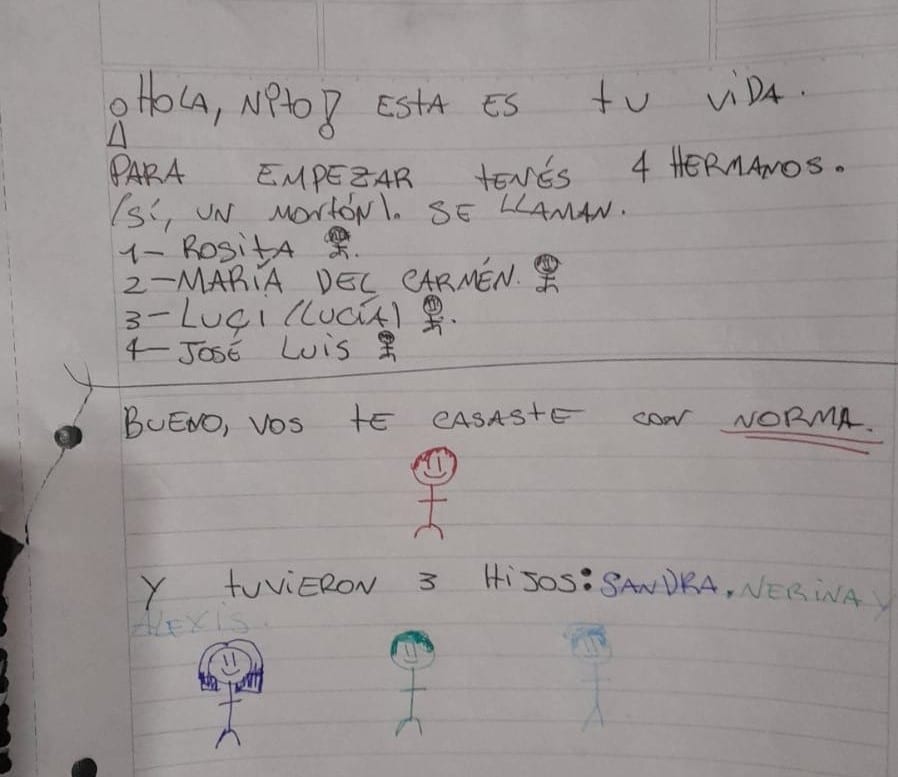 ¡HOLA, NPTO! ESTA ES tu viDA.
PARA EMPEZAR tENÉS 4 HERMANOS.
(sí, UN MORtÓN). SE LLAMAN.
1- ROSitA
2-MARÍA DEL CARMÉN.
3-LUÇI (LUCÍA)
4-JOSÉ LUiS
BUENO, VOS tE CASASTE con NORMA.
Y tUViERON 3 HiJOS: SANDRA, NERiNA y
ALEXiS.